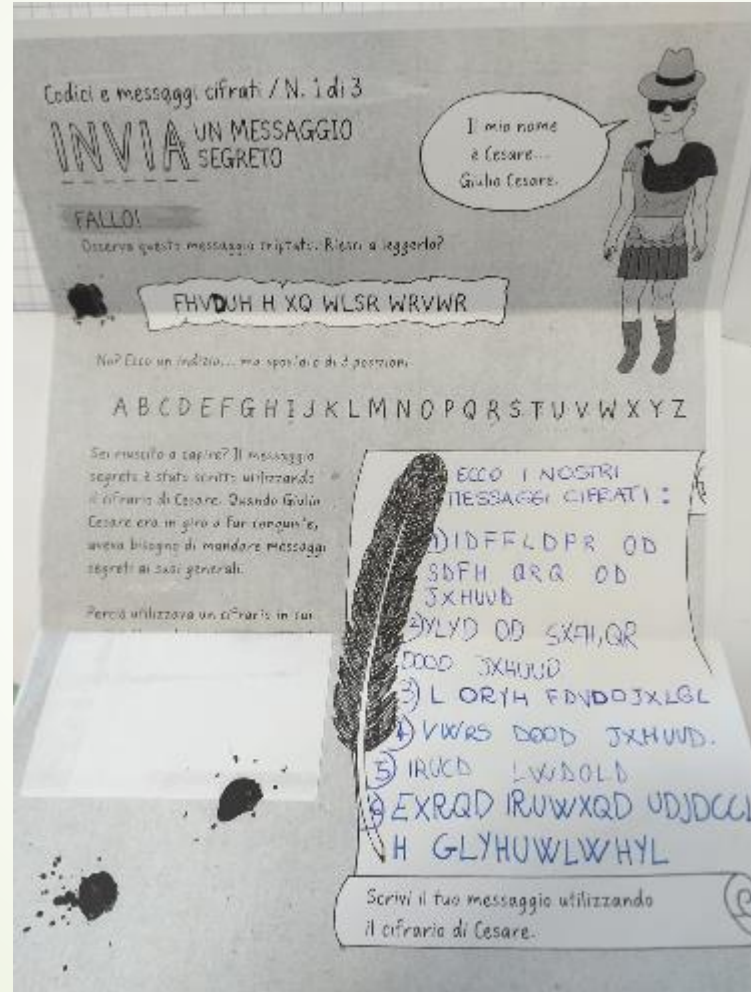 Codici e messaggi cifrati / N. 1 di 3
INVIA UN MESSAGGIO
SEGRETO
Il mio nome
è Cesare...
Giulio Cesare.
FALLO!
Osserva questo messaggio criptato. Riesci a leggerlo?
FHVDUH H XQ WLSR WRVWR
No? Ecco un indizio... ma spostalo di 3 posizioni
A B C D E F G H I J K L M N O P Q R S T U V W X Y Z
Sei riuscito a capire? Il messaggio
segreto è stato scritto utilizzando
il cifrario di Cesare. Quando Giulio
Cesare era in giro a far conquiste,
aveva bisogno di mandare messaggi
segreti ai suoi generali.
Perciò utilizzava un cifrario in cui
ECCO I NOSTRI
MESSAGGI CIFRATI :
1) IDFFLDPR OD
SDFH QRQ OD
JXHUUD
2) YLYD OD
DOOD JXHUUD
3) L ORYH FDVDOJXLGL
4) VWRS DOOD JXHUUD.
5) IRUCD LWDOLD
6) EXRQD IRUWXQD UDJDCCL
H GLYHUWLWHYL
Scrivi il tuo messaggio utilizzando
il cifrario di Cesare.